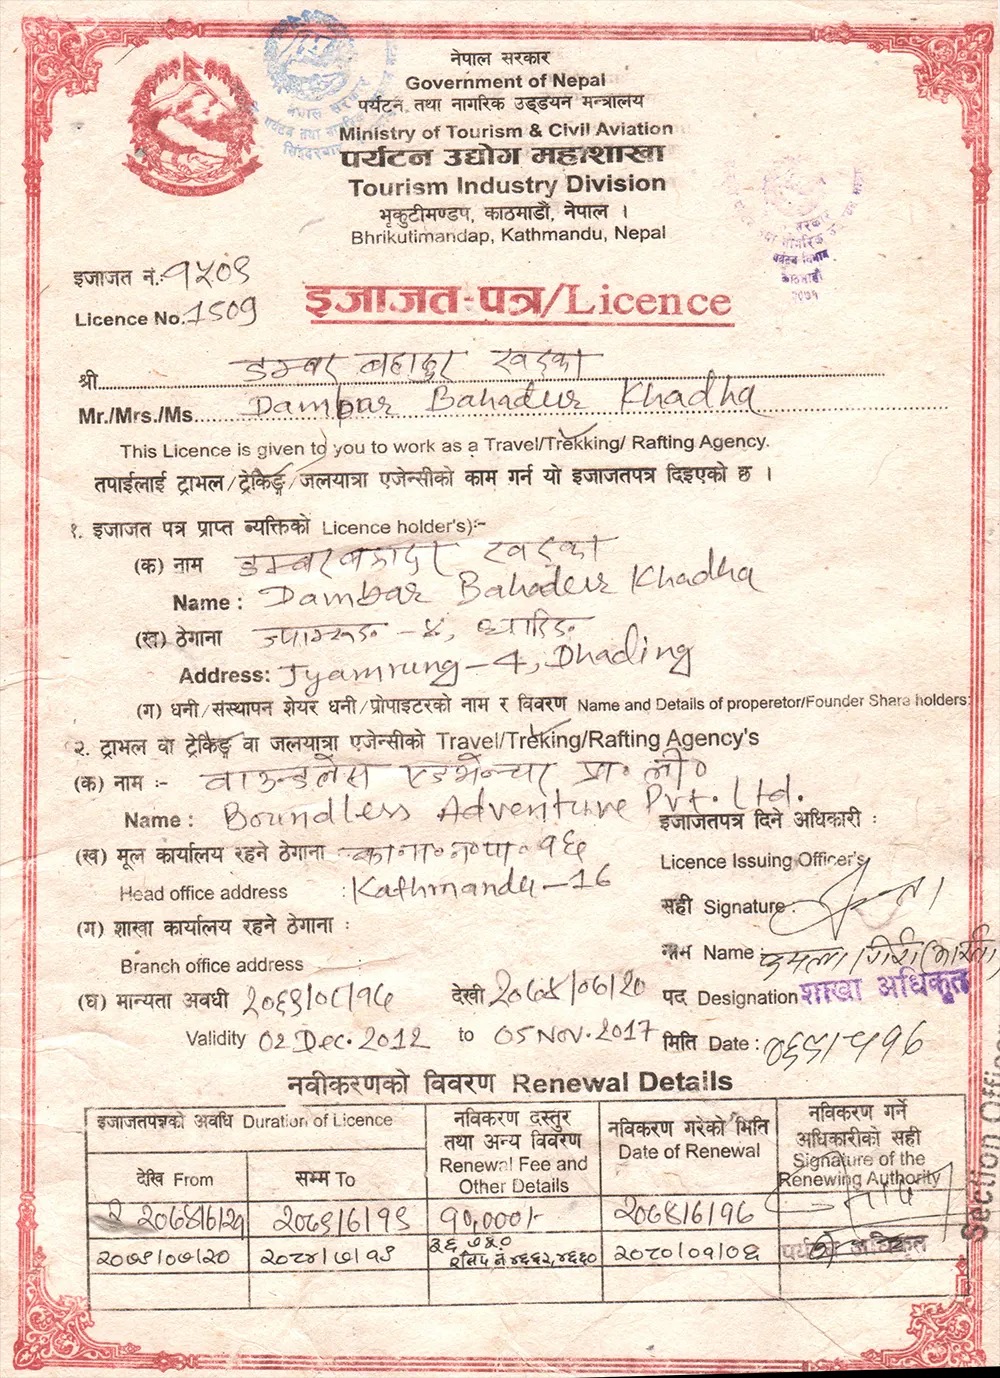 नेपाल सरकार
Government of Nepal
पर्यटन तथा नागरिक उड्डयन मन्त्रालय
Ministry of Tourism & Civil Aviation
पर्यटन उद्योग महाशाखा
Tourism Industry Division
भृकुटीमण्डप, काठमाडौं, नेपाल ।
Bhrikutimandap, Kathmandu, Nepal
इजाजत नं.: १५०९
Licence No. 1509
इजाजत-पत्र/Licence
श्री डम्बर बहादुर खड्का
Mr./Mrs./Ms. Dambar Bahadur Khadha
This Licence is given to you to work as a Travel/Trekking/ Rafting Agency.
तपाईलाई ट्राभल/ट्रेकिङ्ग/जलयात्रा एजेन्सीको काम गर्न यो इजाजतपत्र दिइएको छ ।
१. इजाजत पत्र प्राप्त व्यक्तिको Licence holder's):-
(क) नाम डम्बर बहादुर खड्का
Name : Dambar Bahadur Khadha
(ख) ठेगाना ज्यामरूङ - ४, धादिङ
Address: Jyamrung-4, Dhading
(ग) धनी/संस्थापन शेयर धनी/प्रोपाइटरको नाम र विवरण Name and Details of properetor/Founder Shara holders:
२. ट्राभल वा ट्रेकिङ्ग वा जलयात्रा एजेन्सीको Travel/Treking/Rafting Agency's
(क) नाम :- बाउन्डलेस एडभेन्चर प्रा॰ ली॰
Name : Boundless Adventure Pvt. Ltd.
(ख) मूल कार्यालय रहने ठेगाना का॰म॰न॰पा॰ १६
Head office address : Kathmandu-16
(ग) शाखा कार्यालय रहने ठेगाना :
Branch office address :
(घ) मान्यता अवधी २०६९/०८/१७ देखी २०७४/०७/२०
Validity 02 Dec. 2012 to 05 Nov. 2017
इजाजतपत्र दिने अधिकारी :
Licence Issuing Officer's
सही Signature:
नाम Name :
पद Designation शाखा अधिकृत
मिति Date :
नवीकरणको विवरण Renewal Details
इजाजतपत्रको अवधि Duration of Licence
देखि From
सम्म To
नविकरण दस्तुर तथा अन्य विवरण Renewal Fee and Other Details
नविकरण गरेको मिति Date of Renewal
नविकरण गर्ने अधिकारीको सही Signature of the Renewing Authority
२०७४/७/२१ २०७९/७/१९ १०,०००/- २०७४/७/१६
२०७९/०७/२० २०८४/७/१९ २०८०/०१/०६
Section Officer